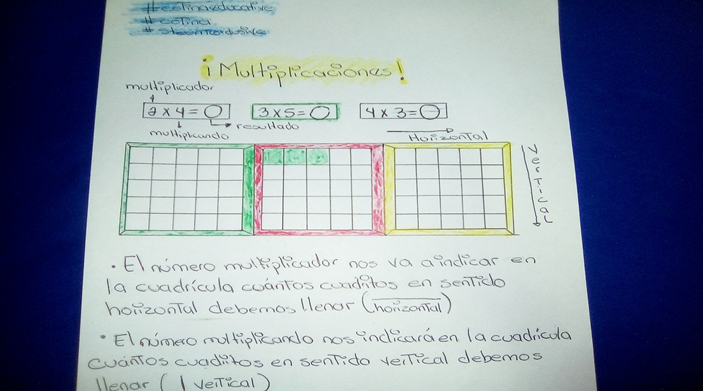 #estinaeducative
#estina
#steamcreative
¡Multiplicaciones!
multiplicador
2 x 4 = 3 x 5 = 4 x 3 =
multiplicando resultado
Horizontal
Vertical
• El número multiplicador nos va a indicar en
la cuadrícula cuántos cuadritos en sentido
horizontal debemos llenar (horizontal)
• El número multiplicando nos indicará en la cuadrícula
cuántos cuadritos en sentido vertical debemos
llenar ( | vertical)